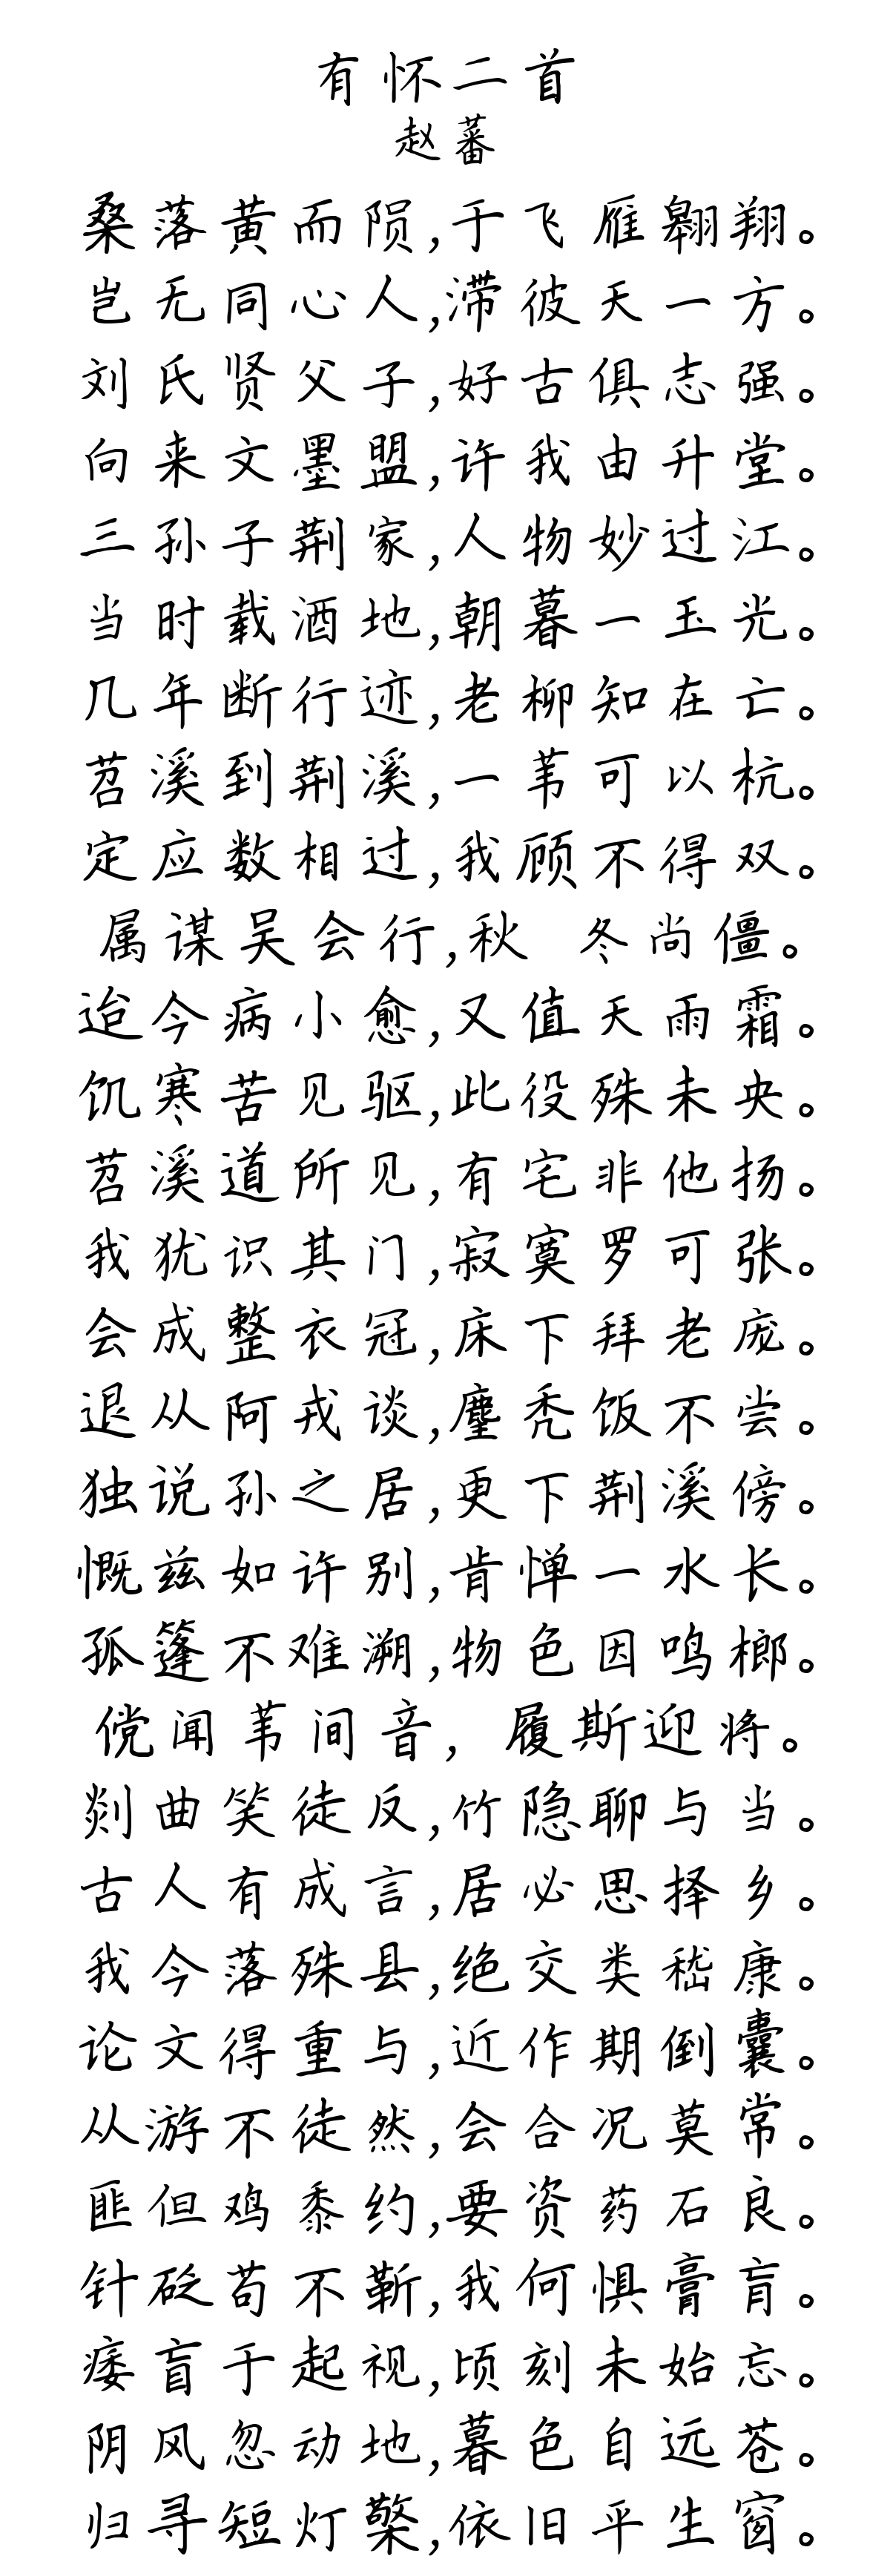 有怀二首
赵蕃
桑落黄而陨,于飞雁翱翔。
岂无同心人,滞彼天一方。
刘氏贤父子,好古俱志强。
向来文墨盟,许我由升堂。
三孙子荆家,人物妙过江。
当时载酒地,朝暮一玉光。
几年断行迹,老柳知在亡。
苕溪到荆溪,一苇可以杭。
定应数相过,我顾不得双。
属谋吴会行,秋 冬尚僵。
迨今病小愈,又值天雨霜。
饥寒苦见驱,此役殊未央。
苕溪道所见,有宅非他扬。
我犹识其门,寂寞罗可张。
会成整衣冠,床下拜老庞。
退从阿戎谈,麈秃饭不尝。
独说孙之居,更下荆溪傍。
慨兹如许别,肯惮一水长。
孤篷不难溯,物色因鸣榔。
傥闻苇间音, 履斯迎将。
剡曲笑徒反,竹隐聊与当。
古人有成言,居必思择乡。
我今落殊县,绝交类嵇康。
论文得重与,近作期倒囊。
从游不徒然,会合况莫常。
匪但鸡黍约,要资药石良。
针砭苟不靳,我何惧膏肓。
痿盲于起视,顷刻未始忘。
阴风忽动地,暮色自远苍。
归寻短灯檠,依旧平生窗。